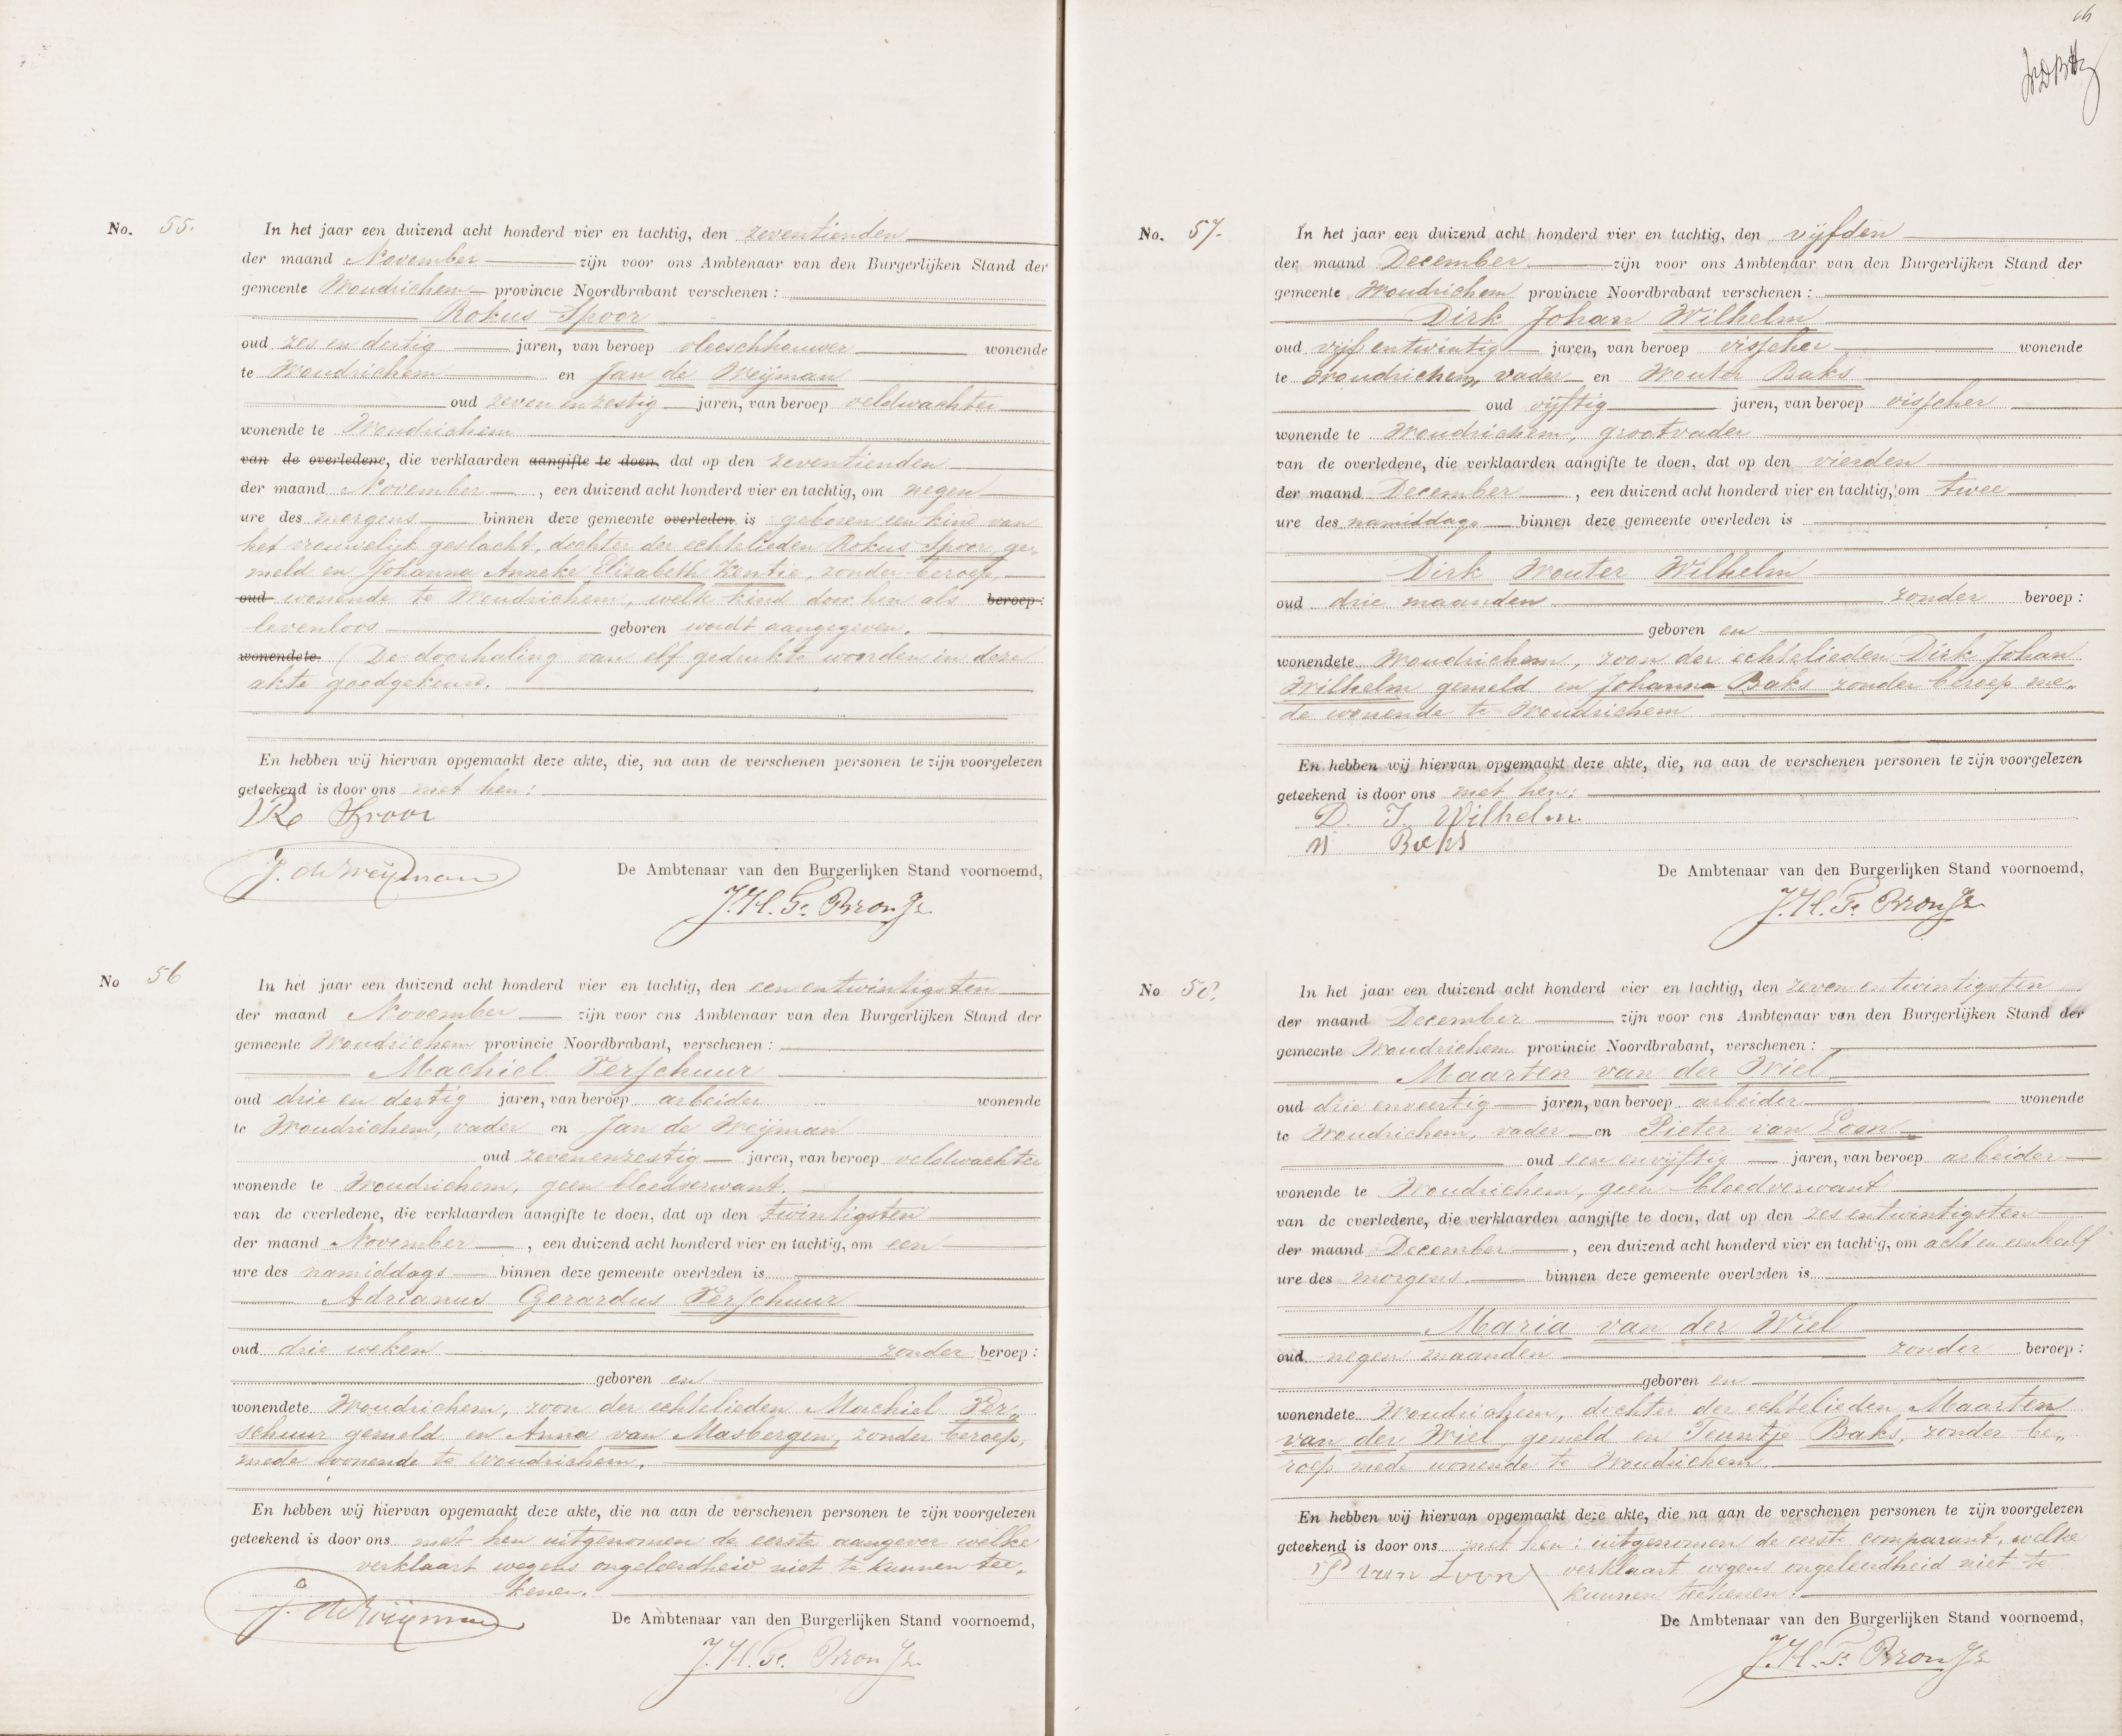 No. 55.
In het jaar een duizend acht honderd vier en tachtig, den zeventienden
der maand November zijn voor ons Ambtenaar van den Burgerlijken Stand der
gemeente Woudrichem provincie Noordbrabant verschenen :
Rokus Spoor
oud zes en dertig jaren, van beroep vleeschhouwer wonende
te Woudrichem en Jan de Weijman
oud zeven en zestig jaren, van beroep veldwachter
wonende te Woudrichem
van de overledene, die verklaarden aangifte te doen, dat op den zeventienden
der maand November , een duizend acht honderd vier en tachtig, om negen
ure des morgens binnen deze gemeente overleden is geboren een kind van
het vrouwelijk geslacht, dochter der echtelieden Rokus Spoor, ge„
meld en Johanna Anneke Elisabeth Kentie, zonder beroep,
oud wonende te Woudrichem, welk kind door hen als beroep:
levenloos geboren wordt aangegeven.
wonendete. (De doorhaling van elf gedrukte woorden in deze
akte goedgekeurd.
En hebben wij hiervan opgemaakt deze akte, die, na aan de verschenen personen te zijn voorgelezen
geteekend is door ons met hen:
R Spoor
J. de Weijman
De Ambtenaar van den Burgerlijken Stand voornoemd,
J.H.Ge. Bron Jz.
No 56
In het jaar een duizend acht honderd vier en tachtig, den een en twintigsten
der maand November zijn voor ons Ambtenaar van den Burgerlijken Stand der
gemeente Woudrichem provincie Noordbrabant, verschenen :
Machiel Verschuur
oud drie en dertig jaren, van beroep arbeider wonende
te Woudrichem, vader en Jan de Weijman
oud zevenenzestig jaren, van beroep veldwachter
wonende te Woudrichem, geen bloedverwant.
van de overledene, die verklaarden aangifte te doen, dat op den twintigsten
der maand November , een duizend acht honderd vier en tachtig, om een
ure des namiddags binnen deze gemeente overleden is
Adrianus Gerardus Verschuur
oud drie weken zonder beroep :
geboren en
wonendete Woudrichem, zoon der echtelieden Machiel Ver„
schuur gemeld en Anna van Masbergen, zonder beroep,
mede wonende te Woudrichem.
En hebben wij hiervan opgemaakt deze akte, die na aan de verschenen personen te zijn voorgelezen
geteekend is door ons met hen uitgenomen de eerste aangever welke
verklaart wegens ongeleerdheid niet te kunnen tee„
kenen.
J. de Weijman
De Ambtenaar van den Burgerlijken Stand voornoemd,
J.H.Ge. Bron Jz.
No. 57.
In het jaar een duizend acht honderd vier en tachtig, den vijfden
der maand December zijn voor ons Ambtenaar van den Burgerlijken Stand der
gemeente Woudrichem provincie Noordbrabant verschenen :
Dirk Johan Wilhelm
oud vijf entwintig jaren, van beroep visscher wonende
te Woudrichem, vader en Wouter Baks
oud vijftig jaren, van beroep visscher
wonende te Woudrichem, grootvader
van de overledene, die verklaarden aangifte te doen, dat op den vierden
der maand December , een duizend acht honderd vier en tachtig, om twee
ure des namiddags binnen deze gemeente overleden is
Dirk Wouter Wilhelm
oud drie maanden zonder beroep :
geboren en
wonendete Woudrichem, zoon der echtelieden Dirk Johan
Wilhelm gemeld en Johanna Baks zonder beroep me„
de wonende te Woudrichem
En hebben wij hiervan opgemaakt deze akte, die, na aan de verschenen personen te zijn voorgelezen
geteekend is door ons met hen:
D. J. Wilhelm.
W Baks
De Ambtenaar van den Burgerlijken Stand voornoemd,
J.H.Ge. Bron Jz
No 58.
In het jaar een duizend acht honderd vier en tachtig, den zeven en twintigsten
der maand December zijn voor ons Ambtenaar van den Burgerlijken Stand der
gemeente Woudrichem provincie Noordbrabant, verschenen :
Maarten van der Wiel
oud drie enveertig jaren, van beroep arbeider wonende
te Woudrichem, vader en Pieter van Loon
oud een envijftig jaren, van beroep arbeider
wonende te Woudrichem, geen bloedverwant
van de overledene, die verklaarden aangifte te doen, dat op den zes entwintigsten
der maand December , een duizend acht honderd vier en tachtig, om acht en een half
ure des morgens. binnen deze gemeente overleden is
Maria van der Wiel
oud negen maanden zonder beroep :
geboren en
wonendete Woudrichem, dochter der echtelieden Maarten
van der Wiel gemeld en Teuntje Baks, zonder be„
roep mede wonende te Woudrichem.
En hebben wij hiervan opgemaakt deze akte, die na aan de verschenen personen te zijn voorgelezen
geteekend is door ons met hen: uitgenomen de eerste comparant, welke
P van Loon verklaart wegens ongeleerdheid niet te
kunnen teekenen.
De Ambtenaar van den Burgerlijken Stand voornoemd,
J.H.Ge. Bron Jz